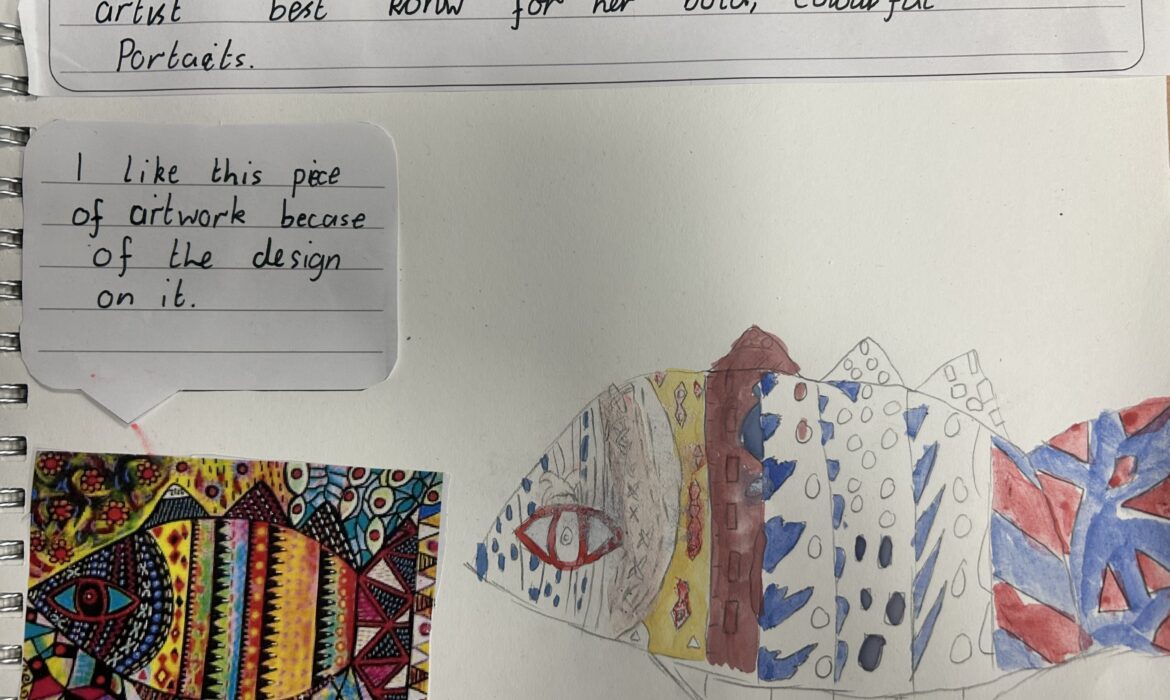 artist best konw for her bold, colourful
Portaits.
I like this piece
of artwork becase
of the design
on it.